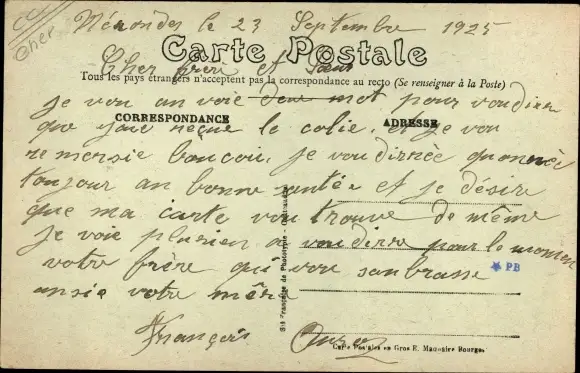 Cher
Nérondes le 23 Septembre 1925
Carte Postale
Cher frère et Sœur
Tous les pays étrangers n'acceptent pas la correspondance au recto (Se renseigner à la Poste)
Je vou an voie deux mot pour vou dirre
CORRESPONDANCE ADRESSE
que jaie reçue le colie. et je vou
remersie boucou. je vou dirrée quon
toujour an bonne santée et je désire
que ma carte vou trouve de même
je voie plusieu a vou dirre pour le momen
votre frère qui vou sanbrasse
PB
ansie votre mère
François
Sté Française de Phototypie
Carte Postales en Gros E. Maquaire Bourges